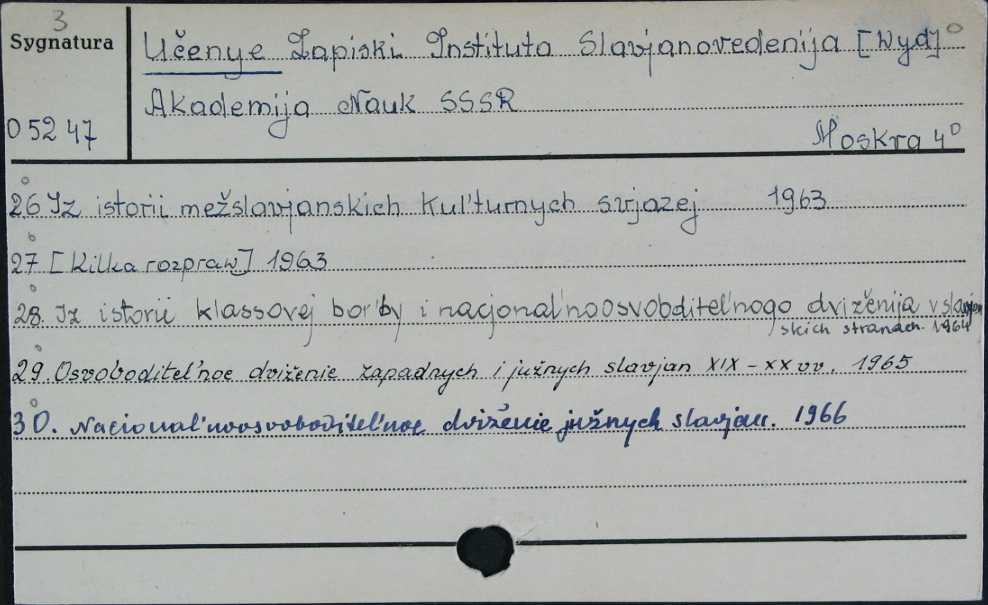 3
Sygnatura
Učenye Zapiski Instituta Slavjanovedenija [Wyd]
Akademija Nauk SSSR
05247
Moskva 4°
26 Iz istorii mežslavjanskich kul'turnych svjazej 1963
27 [Kilka rozpraw] 1963
28. Iz istorii klassovej bor'by i nacjonal'noosvobditel'nogo dviženija v slavjan
skich stranach. 1964
29. Osvoboditel'noe dviženie zapadnych i južnych slavjan XIX - XX vv. 1965
30. Nacional'noosvoboditel'noe dviženie južnych slavjan. 1966